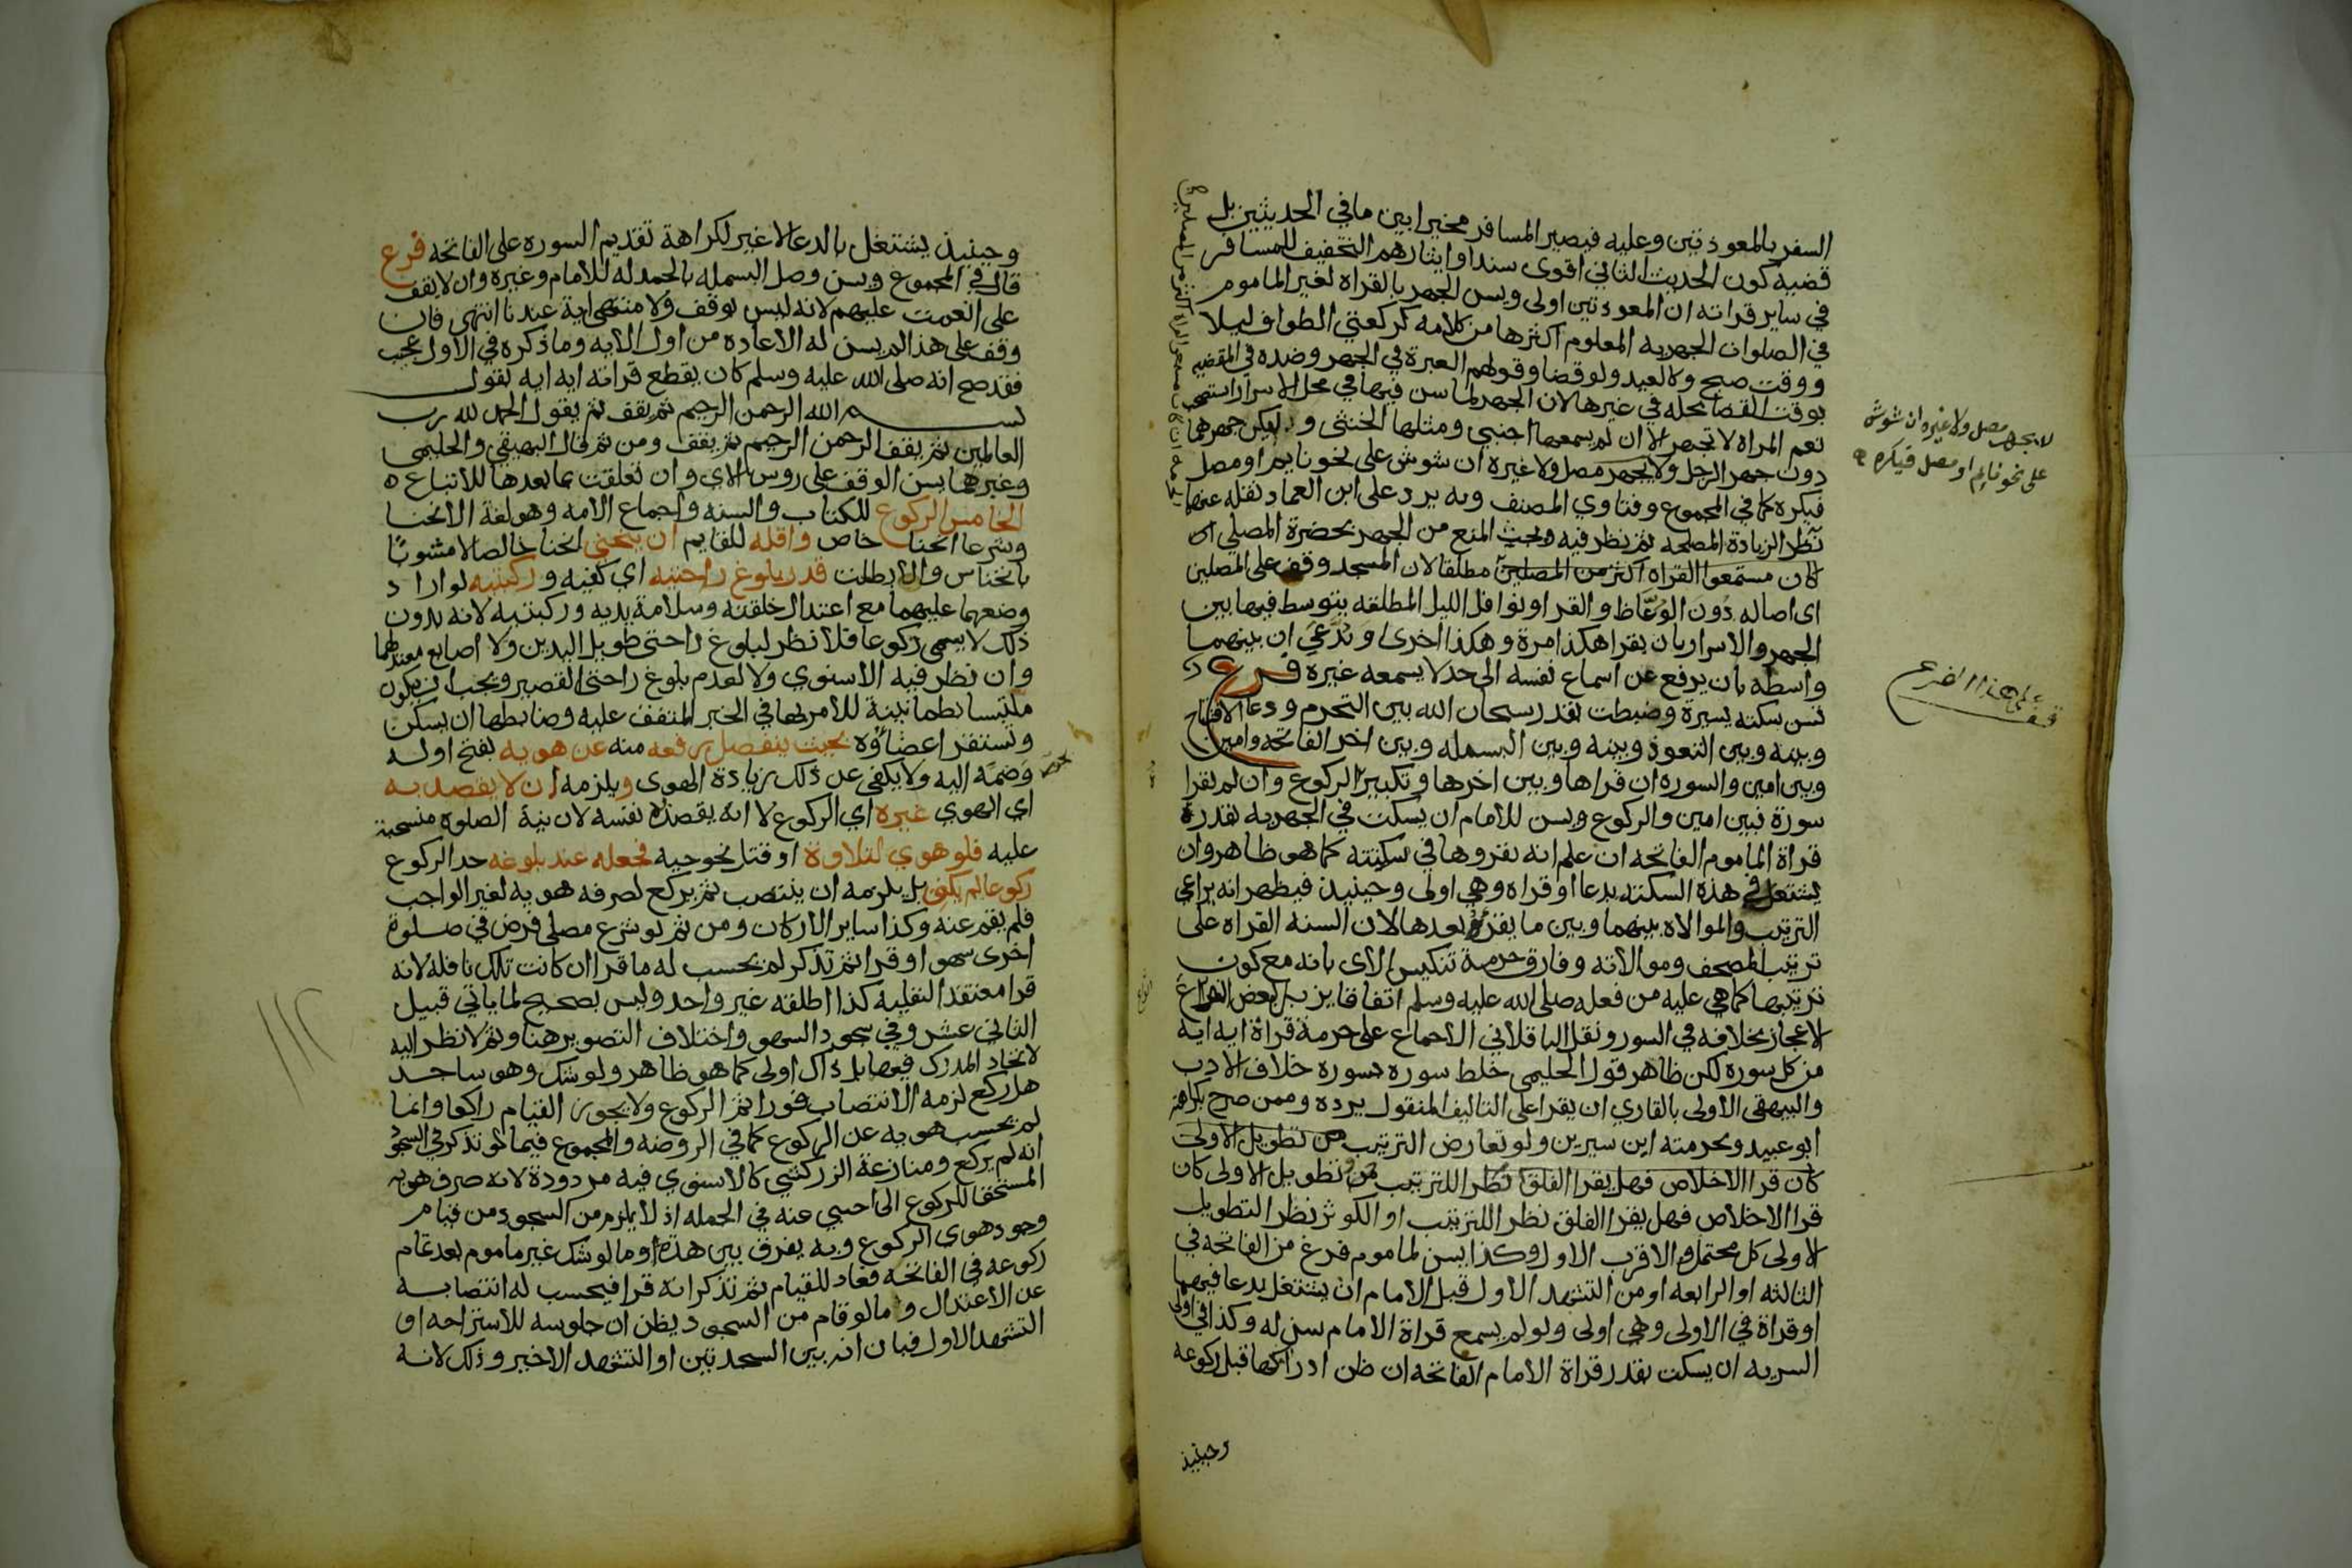 السفر بالمعوذتين وعليه فيصير المسافر مخيرا بين ما في الحديثين بل
قضية كون الحديث الثاني اقوى سندا وايثارهم التخفيف للمسافر
في ساير قراته ان المعوذتين اولى ويسن الجهر بالقراة لغير الماموم
في الصلوات الجهرية المعلوم اكثرها من كلامه كركعتي الطواف ليلا
ووقت صبح وكالعيد ولو قضا وقولهم العبرة في الجهر وضده في المقضيه
بوقت القضا محله في غيرها لان الجهر لما سن فيها في محل الاسرار استصحب
نعم المراة لا تجهر الا ان لم يسمعها اجنبي ومثلها الخنثى وليكن جهرهما
دون جهر الرجل ولا يجهر مصل ولا غيره ان شوش على نحو نايم او مصل
فيكره كما في المجموع وفتاوي المصنف وبه يرد على ابن العماد نقله عنهما
نظر الزيادة المصلحه ثم نظر فيه وبحث المنع من الجهر بحضرة المصلي اي
كان مستمعوا القراه اكثر من المصلين مطلقا لان المسجد وقف على المصلين
اي اصاله دون الوعاظ والقرا ونوافل الليل المطلقه يتوسط فيها بين
الجهر والاسرار بان يقرا هكذا مرة وهكذا اخرى او يدعي ان بينهما
واسطه بان يرفع عن اسماع نفسه الى حد لا يسمعه غيره فرع
تسن سكته يسيرة وضبطت بقدر سبحان الله بين التحرم ودعا الافتتاح
وبينه وبين التعوذ وبينه وبين البسمله وبين اخر الفاتحه وامين
وبين امين والسوره ان قراها وبين اخرها وتكبير الركوع وان لم يقرا
سورة فبين امين والركوع ويسن للامام ان يسكت في الجهريه بقدر
قراة الماموم الفاتحه ان علم انه يقروها في سكتته كما هو ظاهر وان
يشتغل في هذه السكته بدعا او قراه وهي اولى وحينيذ فيظهر انه يراعي
الترتيب والموالاه بينهما وبين ما يقرؤه بعدها لان السنه القراه على
ترتيب المصحف وموالاته وفارق حرمة تنكيس الاي بانه مع كون
ترتيبها كما هي عليه من فعله صلى الله عليه وسلم اتفاقا يزيل بعض انواع
الاعجاز بخلافه في السور ونقل الباقلاني الاجماع على حرمة قراة اية اية
من كل سورة لكن ظاهر قول الحليمي خلط سورة بسورة خلاف الادب
والبيهقي الاولى بالقاري ان يقرا على التاليف المنقول يرده وممن صرح بكراهته
ابو عبيد وبحرمته ابن سيرين ولو تعارض الترتيب وتطويل الاولى
كان قرا الاخلاص فهل يقرا الفلق نظرا للترتيب وتطويل الاولى كان
قرا الاخلاص فهل يقرا الفلق نظرا للترتيب او الكوثر نظرا لتطويل
الاولى كل محتمل والاقرب الاول وكذا يسن لماموم فرغ من الفاتحه في
الثالثه او الرابعه او من التشهد الاول قبل الامام ان يشتغل بدعا فيهما
او قراة في الاولى وهي اولى ولو لم يسمع قراة الامام سن له وكذا في اولى
السريه ان يسكت بقدر قراة الامام الفاتحه ان ظن ادراكها قبل ركوعه
وحينيذ
لا يجهر مصل ولا غيره ان شوش
على نحو نايم او مصل فيكره
قف على هذا الفرع
وحينيذ يشتغل بالدعا لا غير لكراهة تقديم السوره على الفاتحه فرع
قال في المجموع ويسن وصل البسمله بالحمدله للامام وغيره وان لا يقف
على انعمت عليهم لانه ليس بوقف ولا منتهى اية عندنا انتهى فان
وقف على هذا لم يسن له الاعاده من اول الايه وما ذكره في الاول عجيب
فقد صح انه صلى الله عليه وسلم كان يقطع قراته اية اية يقول
بسم الله الرحمن الرحيم ثم يقف ثم يقول الحمد لله رب
العالمين ثم يقف الرحمن الرحيم ثم يقف ومن ثم قال البيهقي والحليمي
وغيرهما يسن الوقف على روس الاي وان تعلقت بما بعدها للاتباع
الخامس الركوع للكتاب والسنه واجماع الامه وهو لغة الانحنا
وشرعا انحنا خاص واقله للقايم ان ينحني انحنا خالصا لا مشوبا
بانخناس والا بطلت قدر بلوغ راحتيه اي كفيه وركبتيه لو اراد
وضعهما عليهما مع اعتدال خلقته وسلامة يديه وركبتيه لانه بدون
ذلك لا يسمى ركوعا فلا نظر لبلوغ راحتي طويل اليدين ولا اصابع معتدلهما
وان نظر فيه الاسنوي ولا لعدم بلوغ راحتي القصير ويجب ان يكون
ملتبسا بطمانينة للامر بها في الخبر المتفق عليه وضابطها ان يسكن
وتستقر اعضاؤه بحيث ينفصل رفعه منه عن هويه بفتح اوله
وضمه اليه ولا يكفي عن ذلك زيادة الهوى ويلزمه ان لا يقصد به
اي الهوي غيره اي الركوع لا انه يقصده نفسه لان نية الصلوه منسحبة
عليه فلو هوي لتلاوة او قتل نحو حيه فجعله عند بلوغه حد الركوع
ركوعا لم يكفي بل يلزمه ان ينتصب ثم يركع لصرفه هويه لغير الواجب
فلم يقم عنه وكذا ساير الاركان ومن ثم لو شرع مصلي فرض في صلوة
اخرى سهوا وقرا ثم تذكر لم يحسب له ما قرا ان كانت تلك نافله لانه
قرا معتقدا النفلية كذا اطلقه غير واحد وليس بصحيح لما ياتي قبيل
الثاني عشر وفي سجود السهو واختلاف التصوير هنا وثم لا نظر اليه
لاتحاد المدرك فيهما بل ذاك اولى كما هو ظاهر ولو شك وهو ساجد
هل ركع لزمه الانتصاب فورا ثم الركوع ولا يجوز القيام راكعا وانما
لم يحسب هويه عن الركوع كما في الروضه والمجموع فيما لو تذكر في السجود
انه لم يركع ومنازعة الزركشي كالاسنوي فيه مردودة لانه صرف هويه
المستحق للركوع الى اجنبي عنه في الجمله اذ لا يلزم من السجود من قيام
وجود هوى الركوع وبه يفرق بين هذا وما لو شك غير ماموم بعد تمام
ركوعه في الفاتحه فعاد للقيام ثم تذكر انه قرا فيحسب له انتصابه
عن الاعتدال وما لو قام من السجود يظن ان جلوسه للاستراحه او
التشهد الاول فبان انه بين السجدتين او التشهد الاخير وذلك لانه